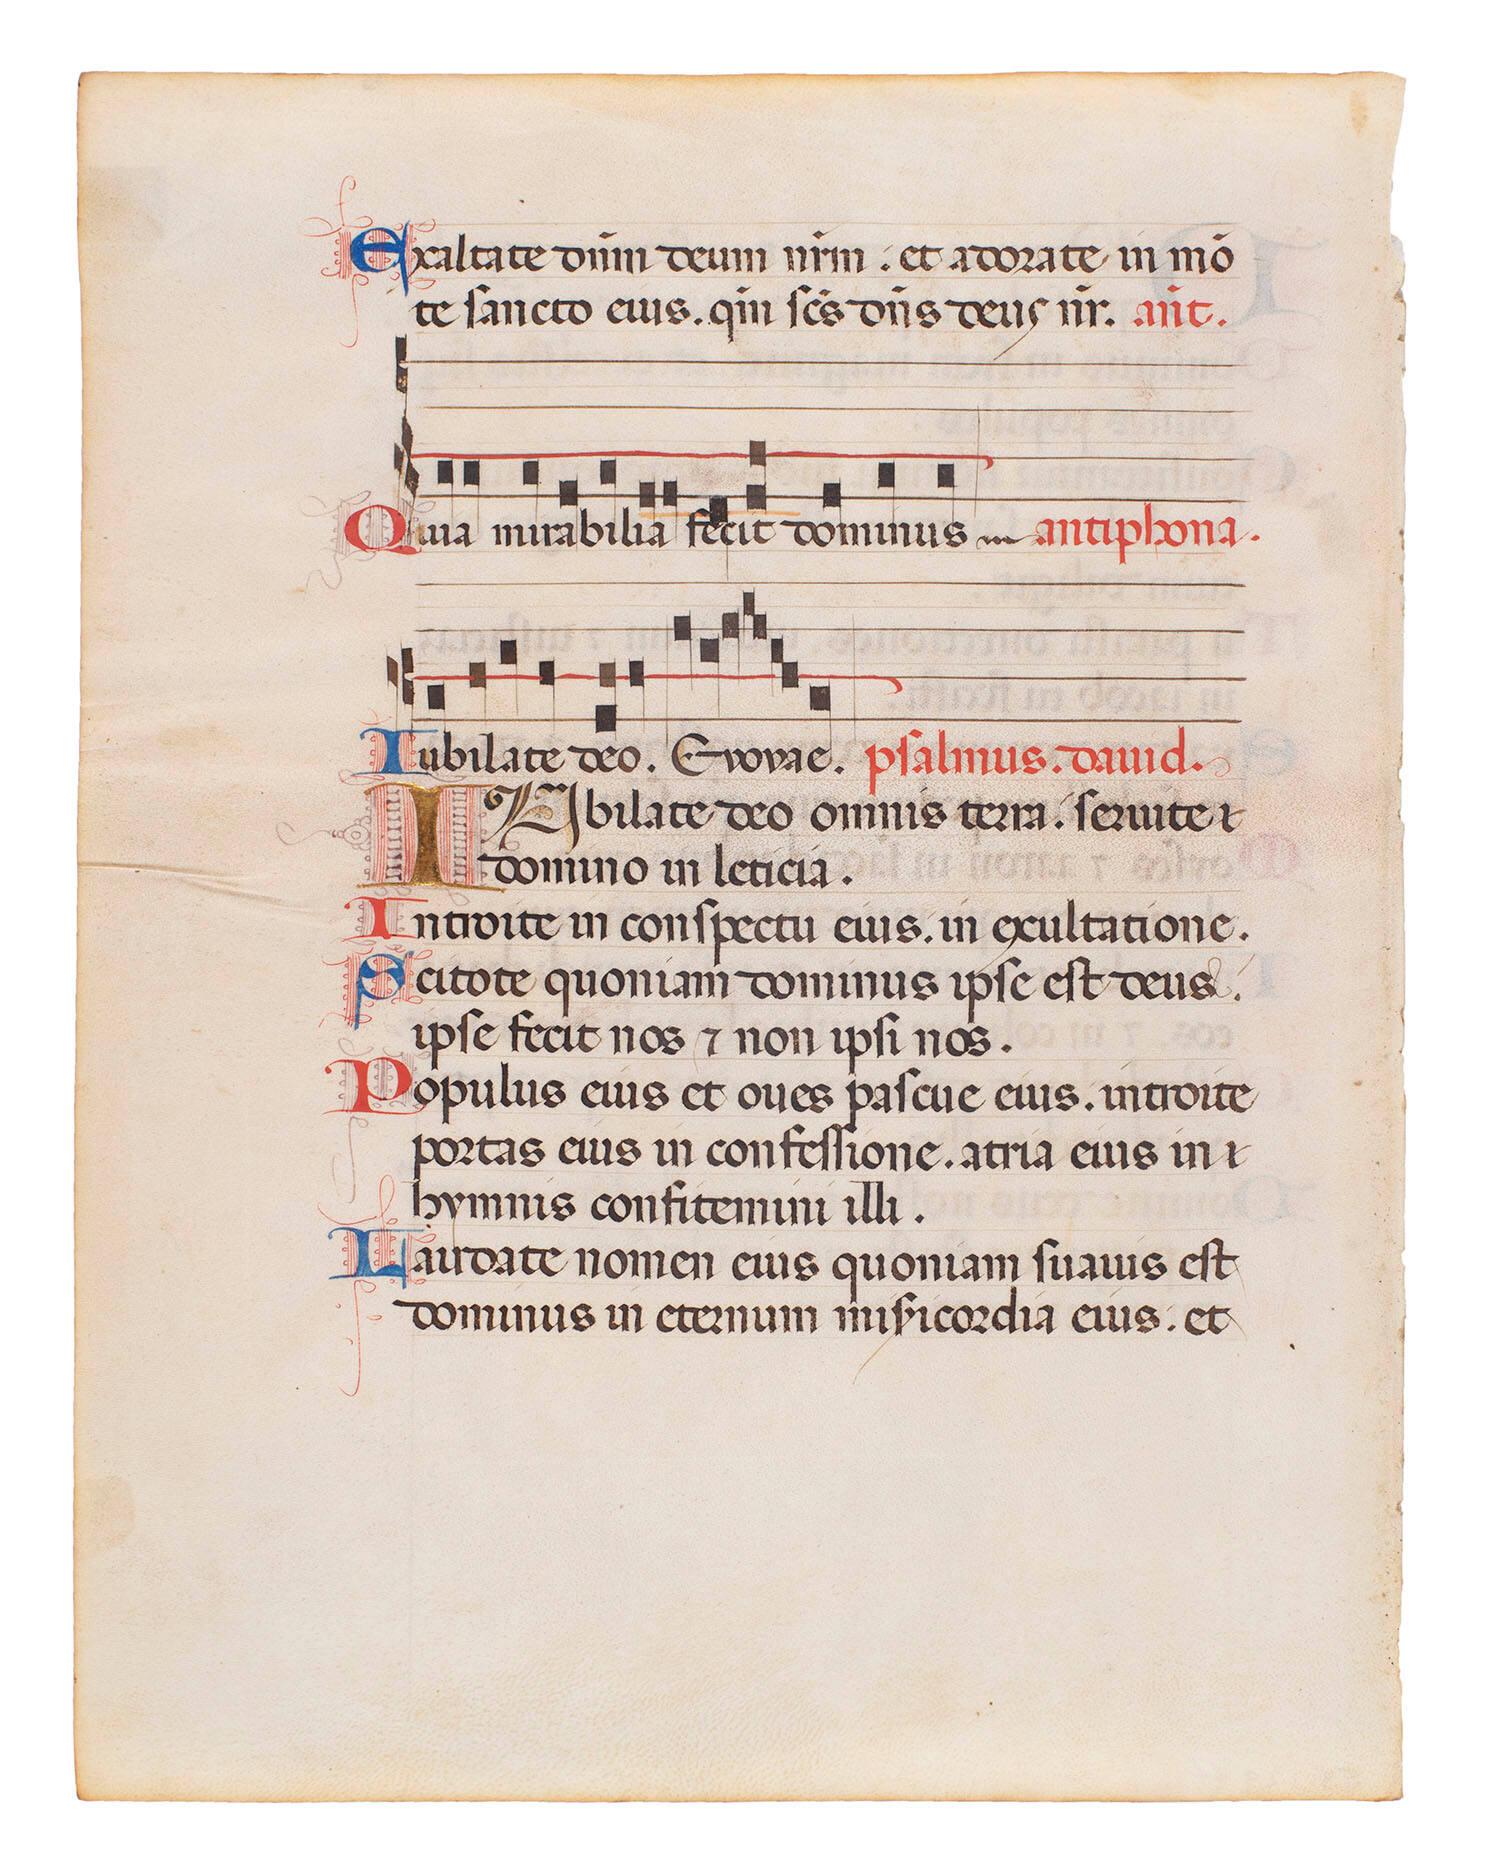 Exaltate dn̄m deum nr̄m : et adorate in mō
te sancto eius . qm̄ sc̄s dn̄s deus nr̄. an̄t.
Quia mirabilia fecit dominus antiphona.
Iubilate deo . Evovae . psalmus . dauid .
IUbilate deo omnis terra . seruite
domino in leticia .
Introite in conspectu eius . in exultatione .
Scitote quoniam dominus ipse est deus .
ipse fecit nos ⁊ non ipsi nos .
Populus eius et oues pascue eius . introite
portas eius in confessione . atria eius in
hymnis confitemini illi .
Laudate nomen eius quoniam suauis est
dominus in eternum mis̄icordia eius : et